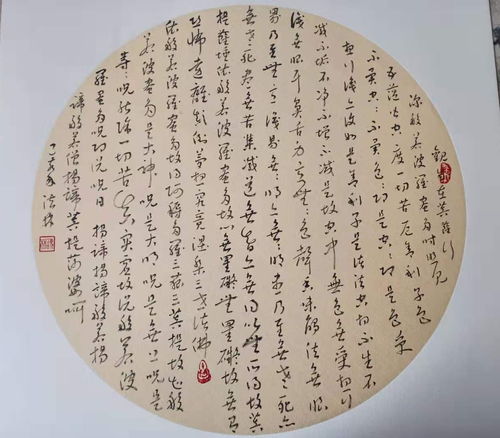 觀自在菩薩行
深般若波羅蜜多時照見
五蘊皆空度一切苦厄舍利子色
不異空空不異色色即是空空即是色受
想行識亦復如是舍利子是諸法空相不生不
滅不垢不淨不增不減是故空中無色無受想行
識無眼耳鼻舌身意無色聲香味觸法無眼
界乃至無意識界無無明亦無無明盡乃至無老死亦
無老死盡無苦集滅道無智亦無得以無所得故菩
提薩埵依般若波羅蜜多故心無罣礙無罣礙故無有
恐怖遠離顛倒夢想究竟涅槃三世諸佛
依般若波羅蜜多故得阿耨多羅三藐三菩提故知般
若波羅蜜多是大神咒是大明咒是無上咒是
等等咒能除一切苦真實不虛故說般若波
羅蜜多咒即說咒曰 揭諦揭諦般若揭
諦般若僧揭諦菩提莎婆呵